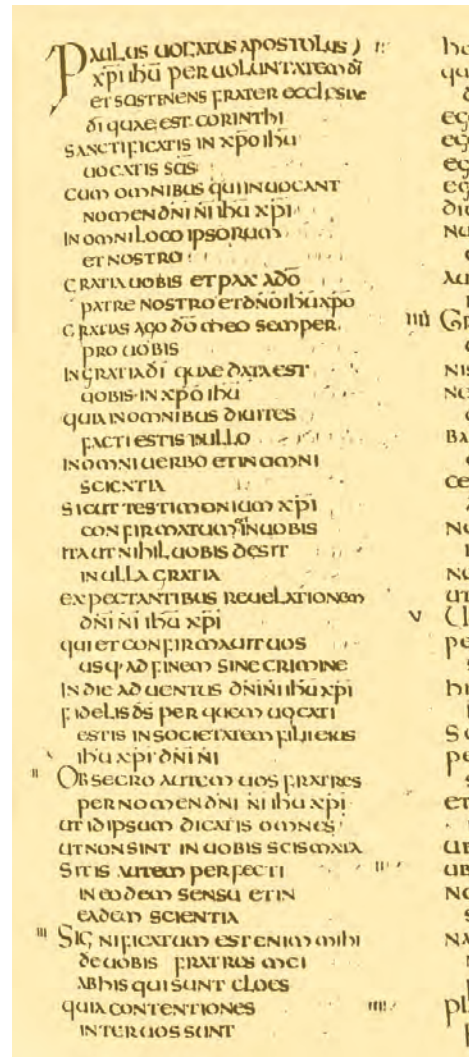 PAULUS UOCATUS APOSTOLUS
XPI IHU PER UOLUNTATEM DI
ET SOSTENENS FRATER ECCLESIAE
DI QUAE EST CORINTHI
SANCTIFICATIS IN XPO IHU
UOCATIS SCIS
CUM OMNIBUS QUI INUOCANT
NOMEN DNI NI IHU XPI
IN OMNI LOCO IPSORUM
ET NOSTRO
GRATIA UOBIS ET PAX A DO
PATRE NOSTRO ET DNO IHU XPO
GRATIAS AGO DO MEO SEMPER
PRO UOBIS
IN GRATIA DI QUAE DATA EST
UOBIS IN XPO IHU
QUIA IN OMNIBUS DIUITES
FACTI ESTIS IN ILLO
IN OMNI UERBO ET IN OMNI
SCIENTIA
SICUT TESTIMONIUM XPI
CONFIRMATUM IN UOBIS
ITA UT NIHIL UOBIS DESIT
IN ULLA GRATIA
EXPECTANTIBUS REUELATIONEM
DNI NI IHU XPI
QUI ET CONFIRMAUIT UOS
USQ· AD FINEM SINE CRIMINE
IN DIE ADUENTUS DNI NI IHU XPI
FIDELIS DS PER QUEM UOCATI
ESTIS IN SOCIETATEM FILII EIUS
IHU XPI DNI NI
II OBSECRO AUTEM UOS FRATRES
PER NOMEN DNI NI IHU XPI
UT ID IPSUM DICATIS OMNES
UT NON SINT IN UOBIS SCISMATA
SITIS AUTEM PERFECTI
IN EODEM SENSU ET IN
EADEM SCIENTIA
III SIGNIFICATUM EST ENIM MIHI
DE UOBIS FRATRES MEI
AB HIS QUI SUNT CLOES
QUIA CONTENTIONES
INTER UOS SUNT